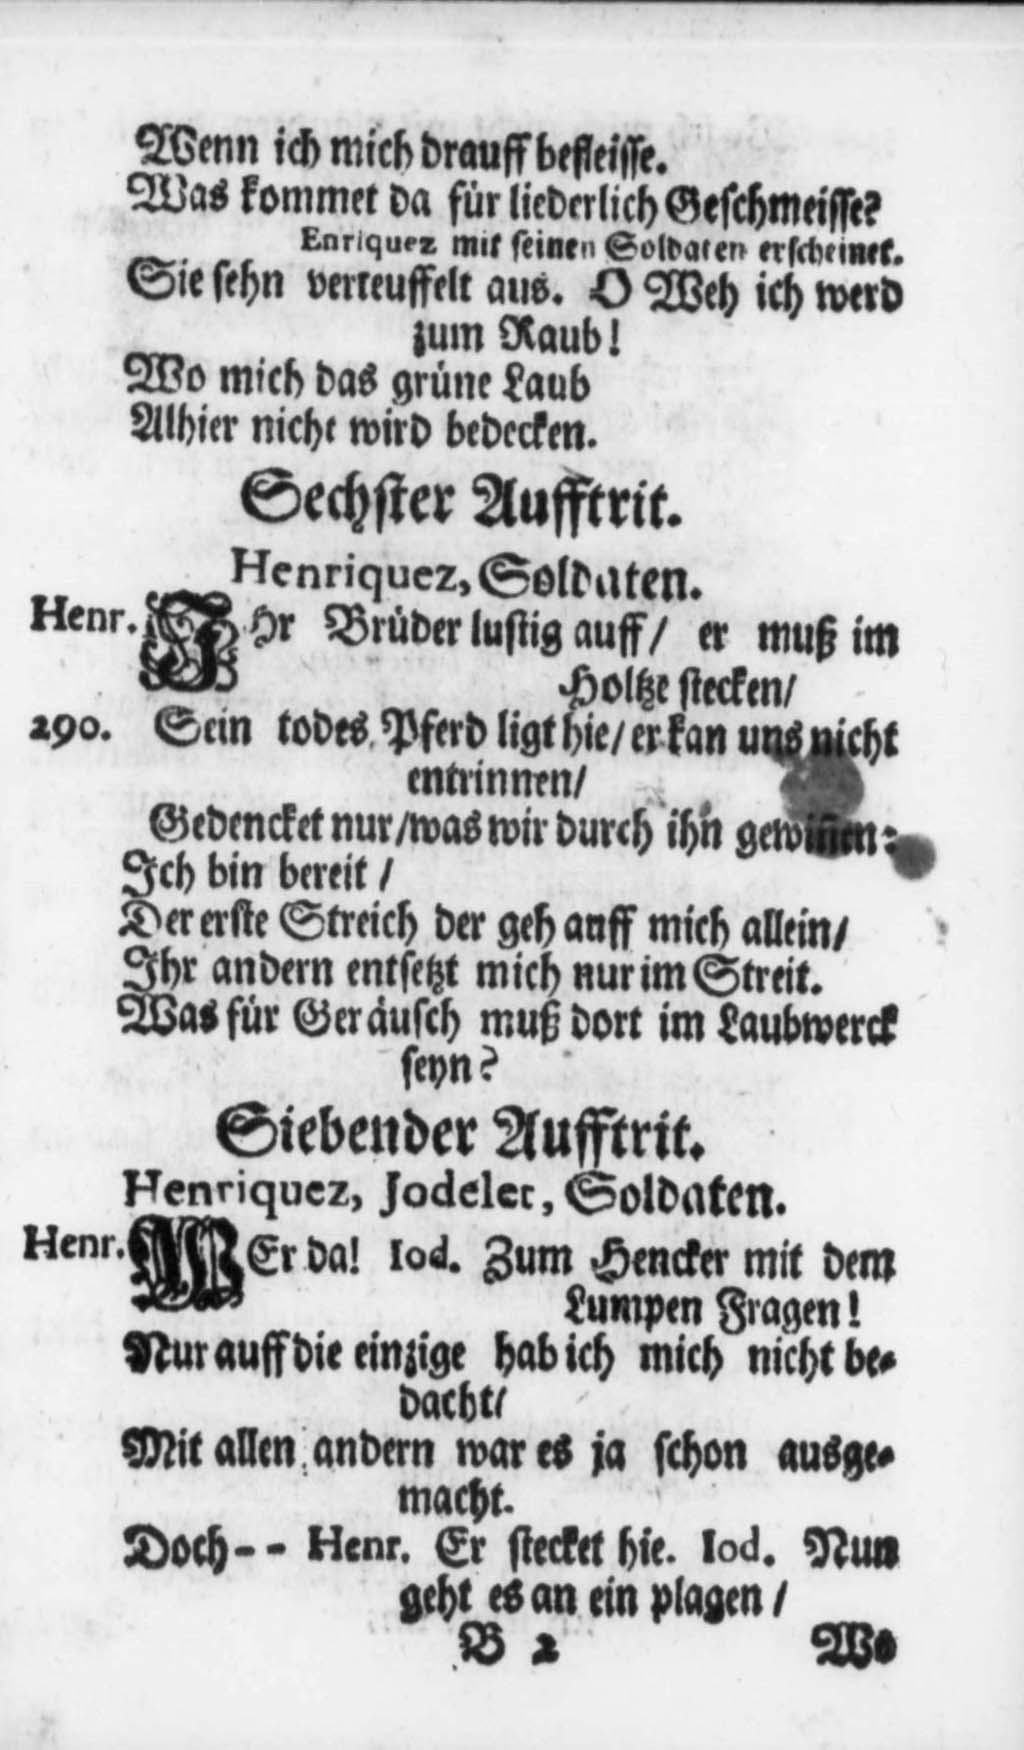 Wenn ich mich drauff befleisse.
Was kommet da für liederlich Geschmeisse?
Enriquez mit seinen Soldaten erscheinet.
Sie sehn verteuffelt aus. O Weh ich werd
zum Raub!
Wo mich das grüne Laub
Alhier nicht wird bedecken.
Sechster Aufftrit.
Henriquez, Soldaten.
Henr. IHr Brüder lustig auff/ er muß im
Holtze stecken/
290. Sein todes Pferd ligt hie/ er kan uns nicht
entrinnen/
Gedencket nur/ was wir durch ihn gewiñen:
Ich bin bereit /
Der erste Streich der geh auff mich allein/
Ihr andern entsetzt mich nur im Streit.
Was für Geräusch muß dort im Laubwerck
seyn?
Siebender Aufftrit.
Henriquez, Jodelet, Soldaten.
Henr. WEr da! Iod. Zum Hencker mit dem
Lumpen Fragen!
Nur auff die einzige hab ich mich nicht be-
dacht/
Mit allen andern war es ja schon ausge-
macht.
Doch - - Henr. Er stecket hie. Iod. Nun
geht es an ein plagen /
B 2 Wo